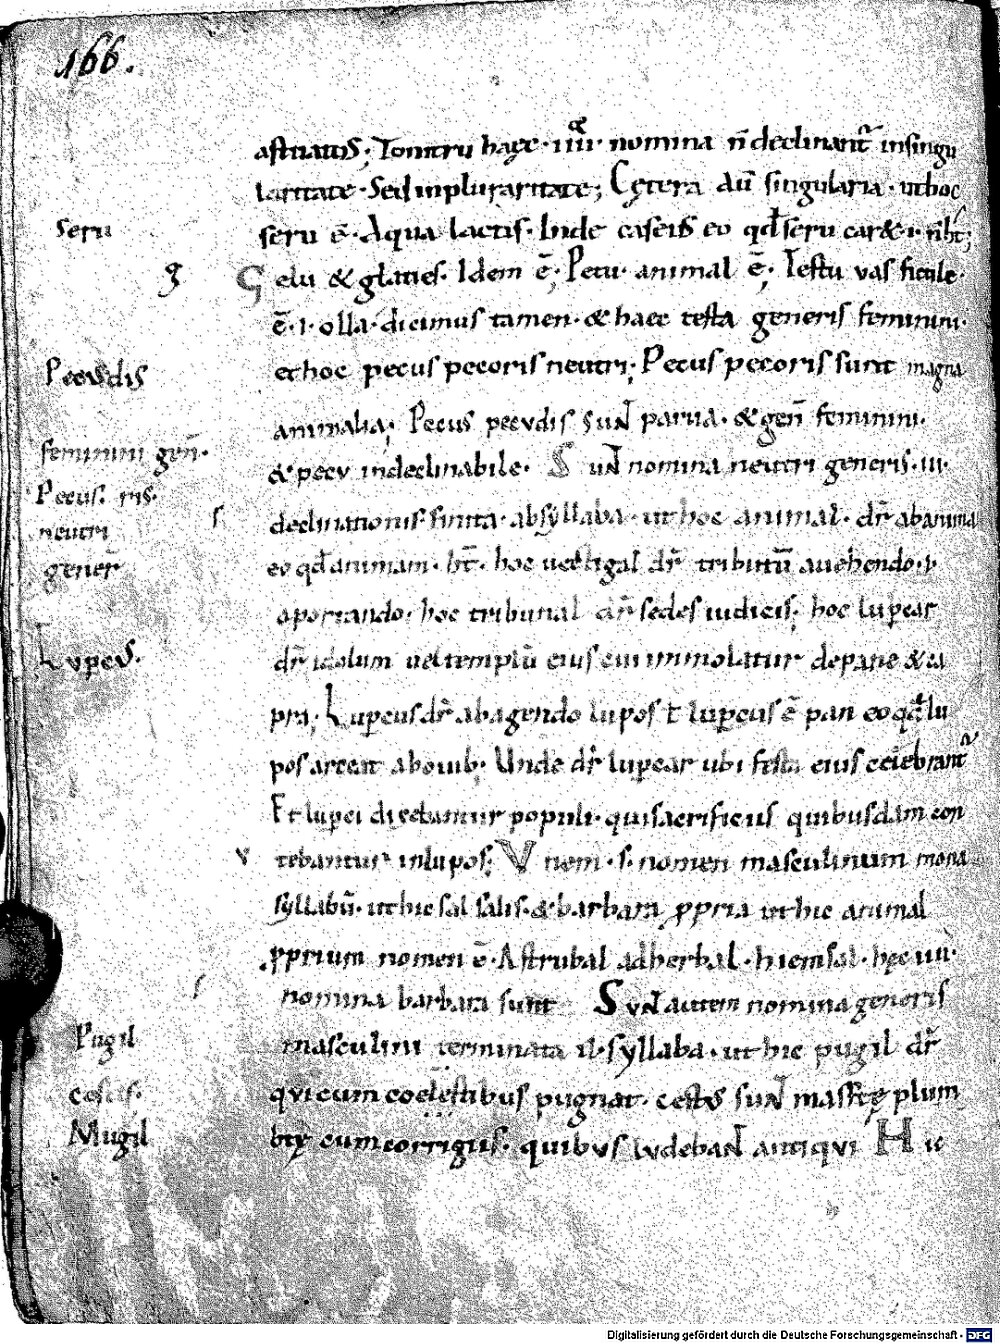 166.
astuatis; Tonitru haec · iiii · nomina n̄ declinant᷑ insingu
laritate · Sed inpluraritate; Cętera dū singularia · ut hoc
Seru
seru ē · Aqua lactis · Inde caseus eo qđ seru car& · i ·
g
Gelu & glacies · Idem ē; Pecu · animal ē; Testu vas fictile ·
ē · i · olla · dicimus tamen · & haec testa generis feminini ·
et hoc pecus pecoris neutri; Pecus pecoris sunt magna
Pecudis
animalia; Pecus pecvdis sunt parua · & geñ feminini ·
feminini geñ ·
& pecv indeclinabile · Sunt nomina neutri generis · iii ·
Pecus · ris ·
neutri
s
declinationis finita · absyllaba · ut hoc animal · dr̄ abanima
gener̄
eo qđ animam · ht̄ · hoc uectigal dr̄ tributū auehendo · ł
aportando · hoc tribunal dr̄ sedes iudicis; hoc lupear
Lvpevs ·
dr̄ idolum uel templū eius cui immolatur depane & ca
pra · Lupeus dr̄ abagendo lupos ł lupeus ē pan eo qđ lu
pos arceat abouib · Unde dr̄ lupear ubi festa eius celebrant᷑
Et lupei dicebantur populi · qui sacrificiis quibusdam con
v
tebantur inlupos; Vnom · s · nomen masculinum mona
syllabū · ut hic sal salis · & barbara ꝓpria ut hic animal
ꝓprium nomen ē · Astrubal adherbal · hiemsal · hęc iiii ·
s
nomina barbara sunt Sunt autem nomina generis
Pugil
masculini terminata il · syllaba · ut hic pugil dr̄
cestus ·
qvi cum coelestibus pugnat · cestvs sunt massę plum
Mugil
bęę cum corrigiis · quibus lvdebant antiqvi Hic
Digitalisierung gefördert durch die Deutsche Forschungsgemeinschaft - DFG